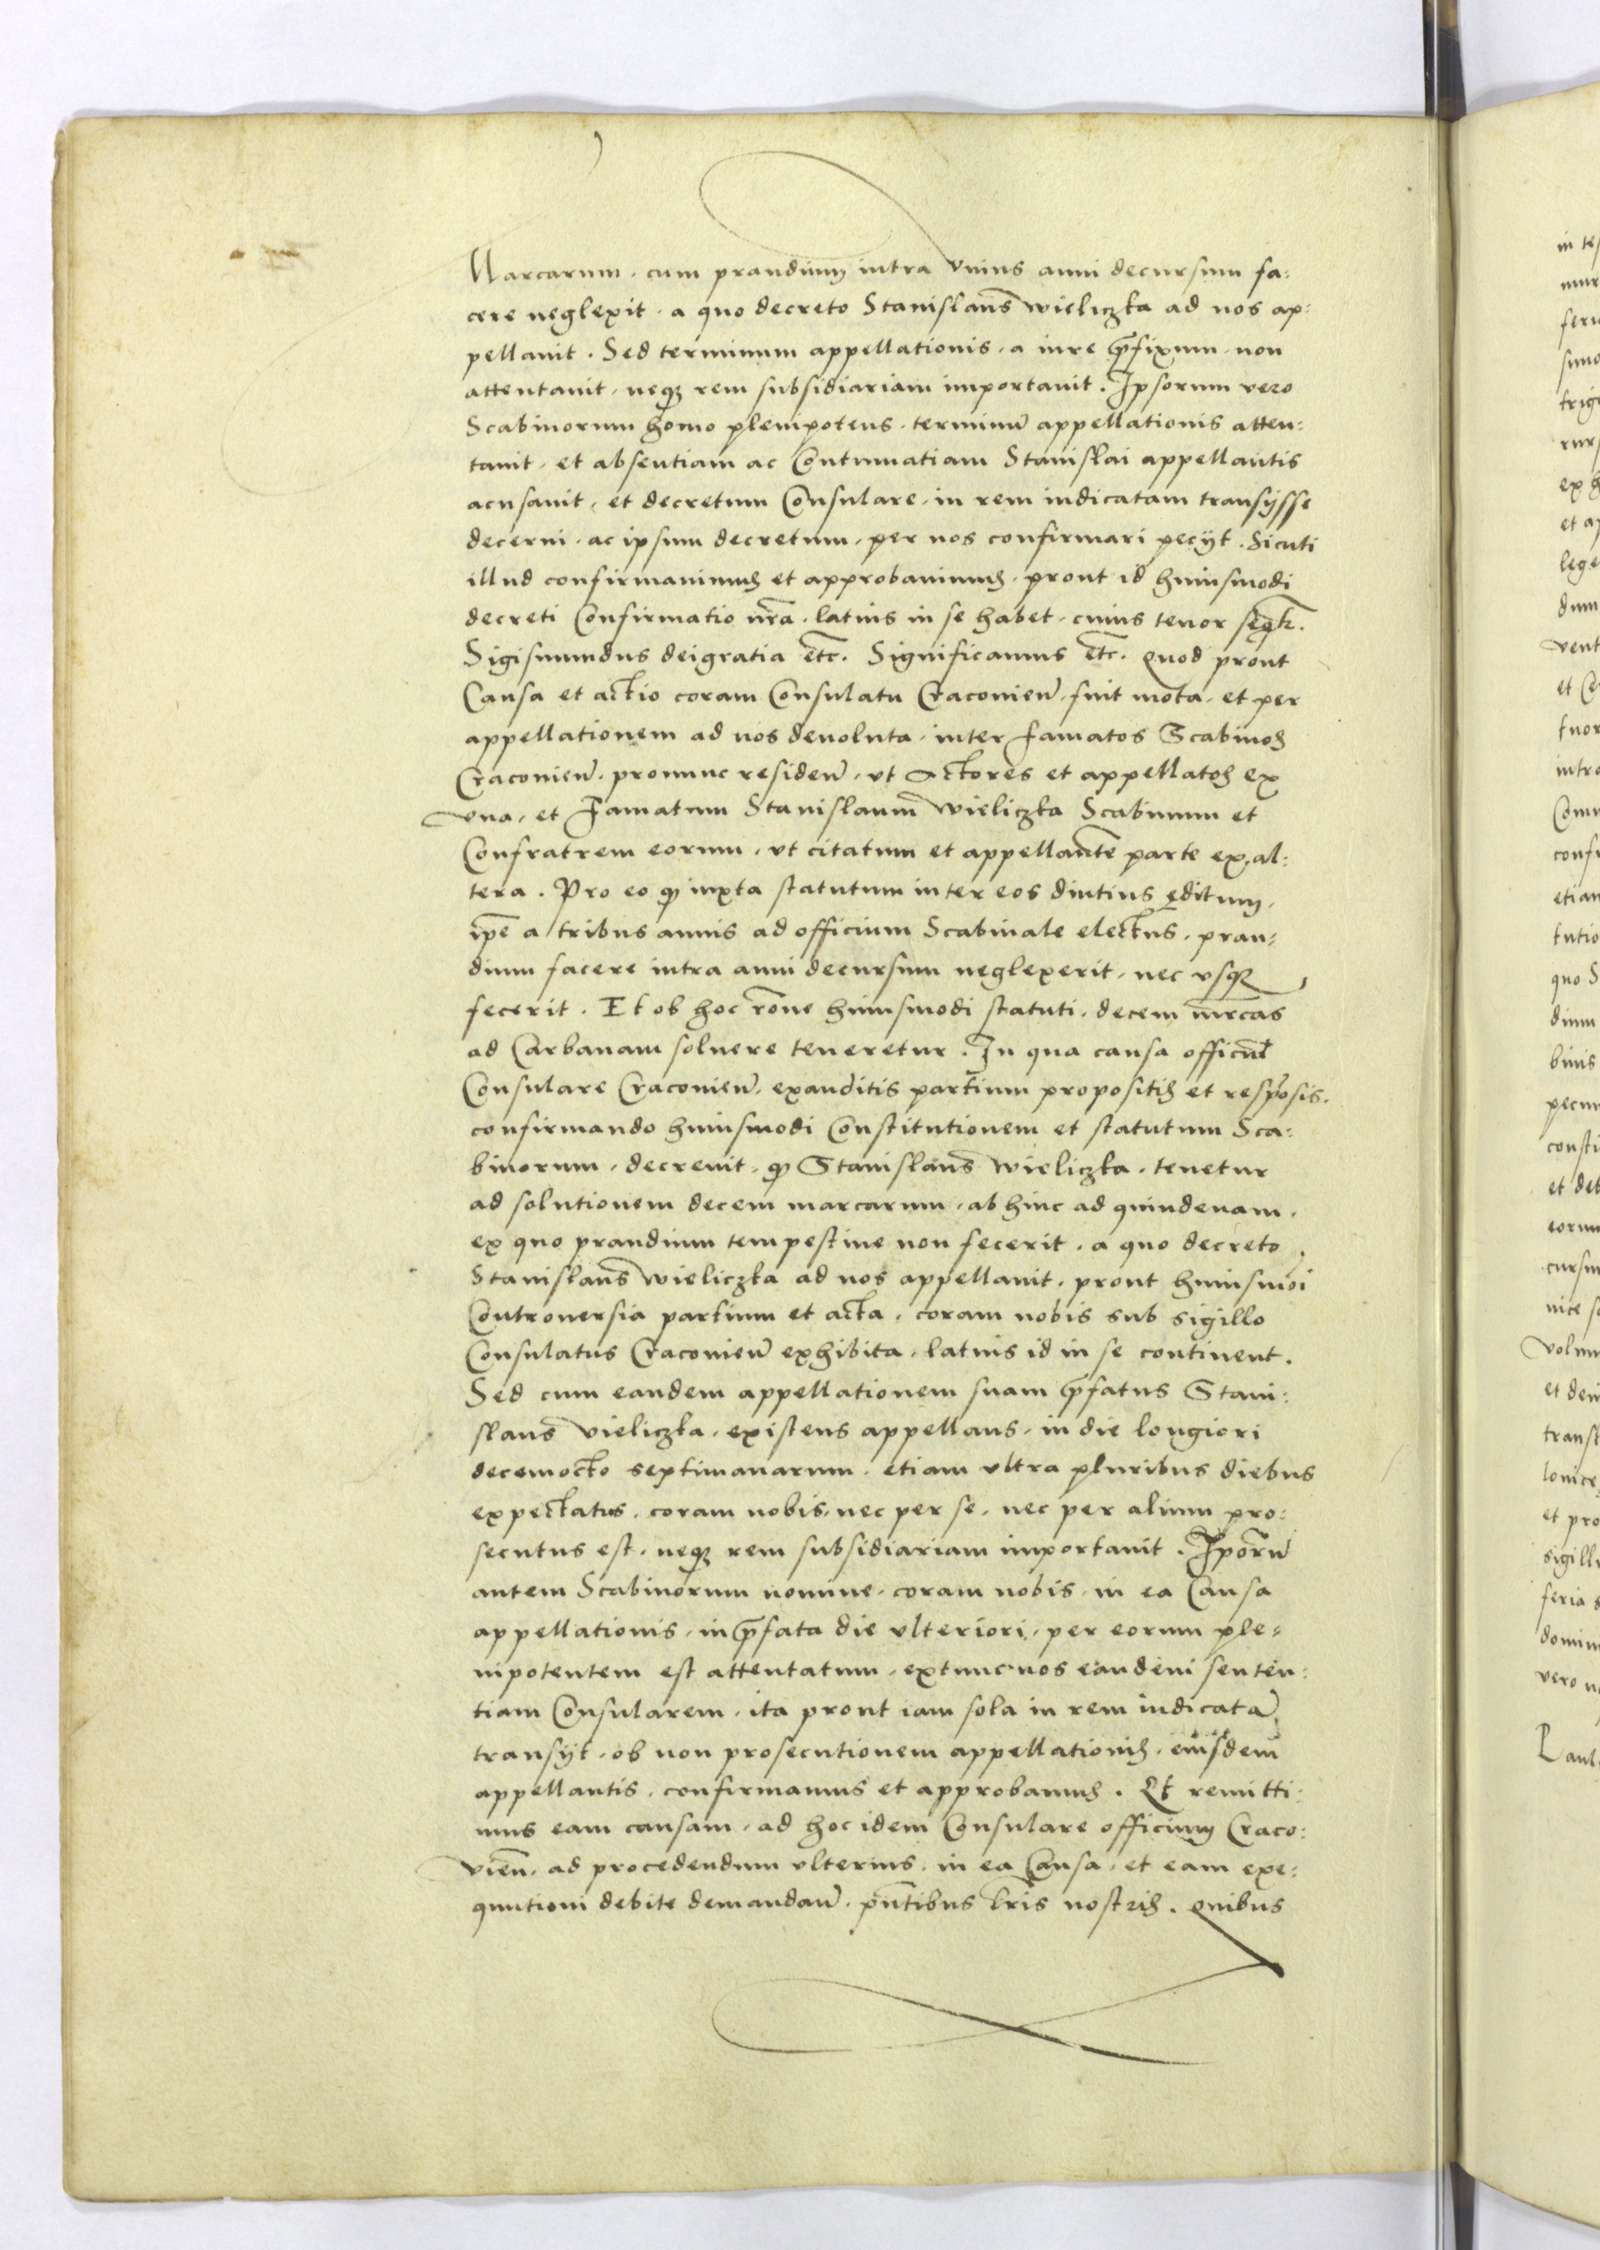 Marcarum, cum prandium intra vnius anni decursum fa:
cere neglexit, a quo decreto Stanislaus wieliczka ad nos ap:
pellauit. Sed terminum appellationis, a iure p̄fixum, non
attentauit, neqȝ rem subsidiariam importauit. Ipsorum vero
Scabinorum homo plenipotens, terminū appellationis atten:
tauit, et absentiam ac Contumatiam Stanislai appellantis
acusauit, et decretum Consulare, in rem iudicatam transijsse
decerni, ac ipsum decretum, per nos confirmari pecijt. Sicuti
illud confirmauimus et approbauimus, prout id huiusmodi
decreti Confirmatio nr̄a, latius in se habet, cuius tenor seqr̄.
Sigismundus dei gratia etc̄. Significamus etc̄. Quod prout
Causa et actio coram Consulatu Cracouien̄, fuit mota, et per
appellationem ad nos deuoluta, inter famatos Scabinos
Cracouien̄, pronunc residen̄, vt Actores et appellatos ex
vna, et Famatum Stanislaum wieliczka Scabinum et
Confratrem eorum, vt citatum et appellantem parte ex al:
tera. Pro eo qȝ iuxta statutum inter eos diutius ęditum,
ip̄e a tribus annis ad officium Scabinale electus, pran:
dium facere intra anni decursum neglexerit, nec vsqȝ
fecerit. Et ob hoc rōne huiusmodi statuti, decem mr̄cas
ad Carbanam soluere teneretur. In qua causa officiū
Consulare Cracouien̄, exauditis partium propositis et respōsis,
confirmando huiusmodi Constitutionem et statutum Sca:
binorum, decreuit, qȝ Stanislaus wieliczka, tenetur
ad solutionem decem marcarum, ab hinc ad quindenam,
ex quo prandium tempestiue non fecerit, a quo decreto
Stanislaus wieliczka ad nos appellauit, prout huiusmoi
Controuersia partium et acta, coram nobis sub sigillo
Consulatus Cracouien̄ exhibita, latius id in se continent.
Sed cum eandem appellationem suam p̄fatus Stani:
slaus vieliczka, existens appellans, in die longiori
decemocto septimanarum, etiam vltra pluribus diebus
expectatus, coram nobis, nec per se, nec per alium pro:
secutus est, neqȝ rem subsidiariam importauit. Ip̄orū
autem Scabinorum nomine, coram nobis, in ea Causa
appellationis, in p̄fata die vlteriori, per eorum ple:
nipotentem est attentatum, extunc nos eandem senten:
tiam Consularem, ita prout iam sola in rem iudicatā
transijt, ob non prosecutionem appellationis, eiusdem
appellantis, confirmamus et approbamus. Et remitti:
mus eam causam, ad hoc idem Consulare officium Craco:
uien̄, ad procedendum vlterius, in ea Causa, et eam exe:
qutioni debite demandan̄, pn̄tibus lr̄is nostris. Quibus